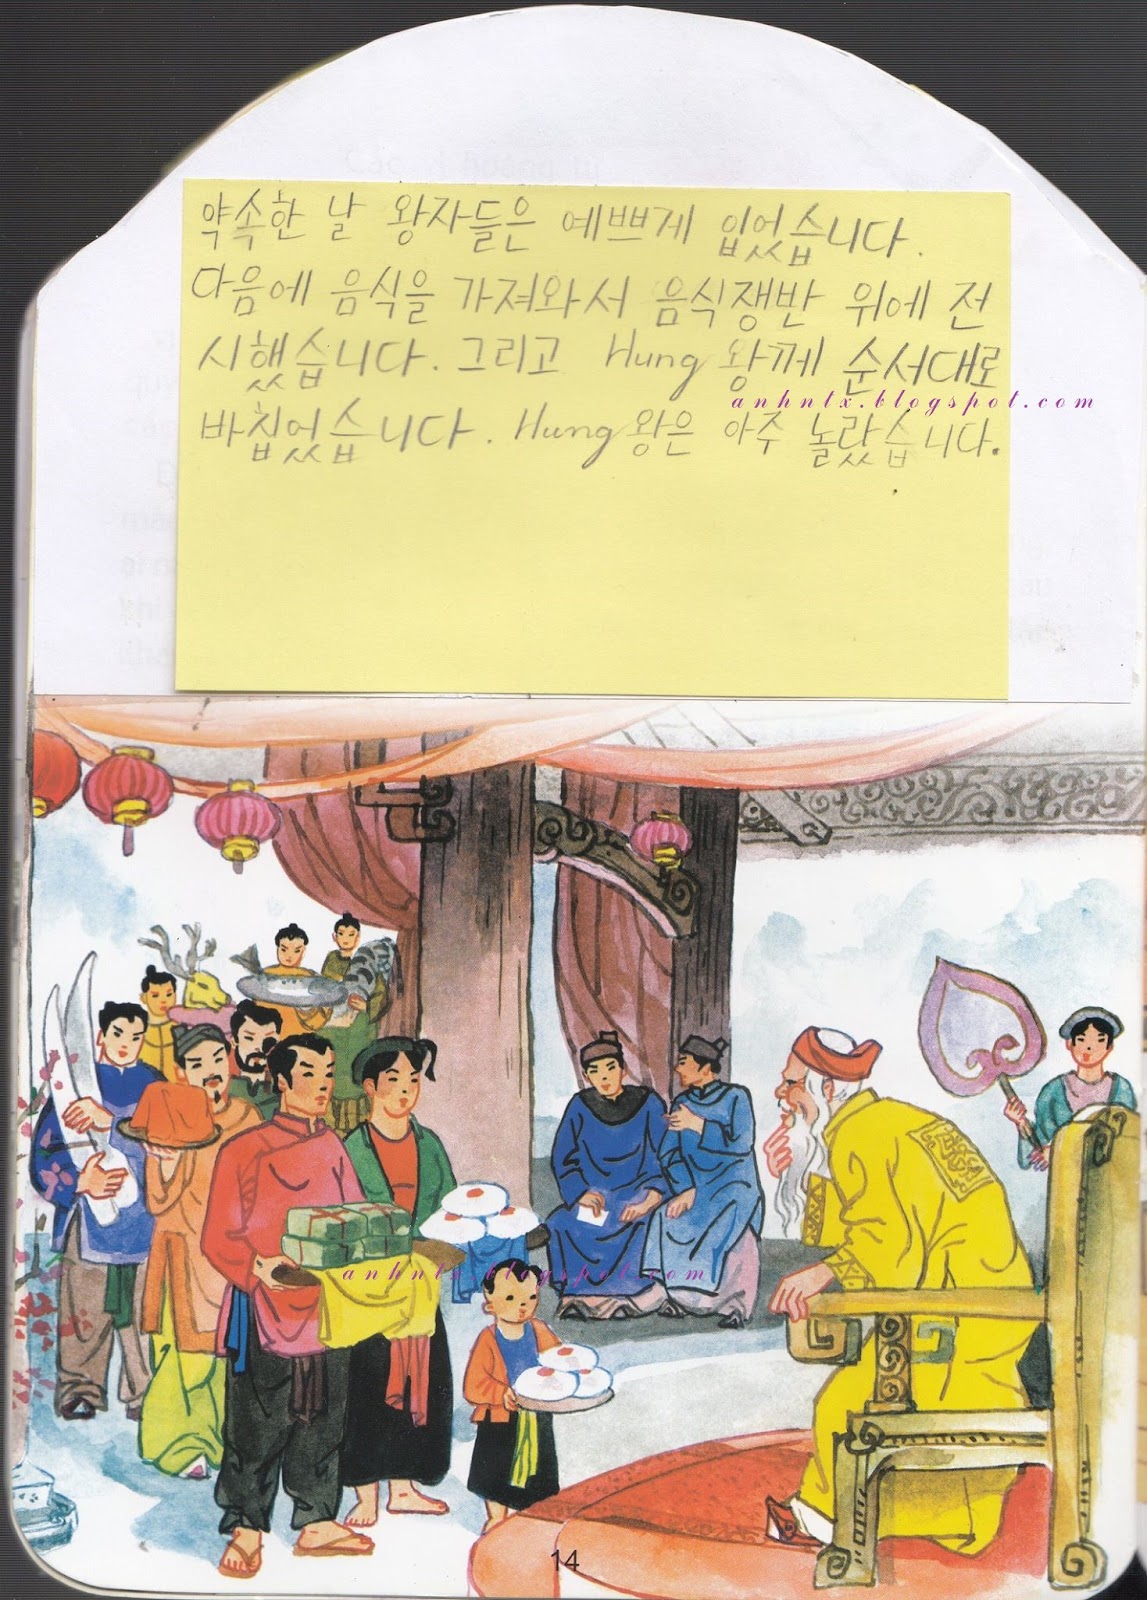 약속한 날 왕자들은 예쁘게 입었습니다.
다음에 음식을 가져와서 음식쟁반 위에 전
시했습니다. 그리고 Hung 왕께 순서대로
anhntx.blogspot.com
바칩었습니다. Hung 왕은 아주 놀랐습니다.
anhntx.blogspot.com
14